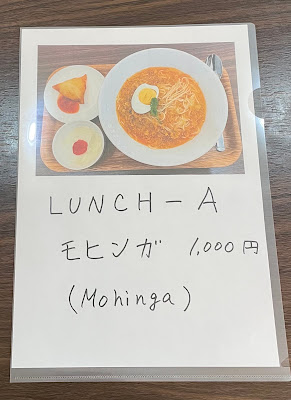 LUNCH-A
モヒンガ 1,000円
(Mohinga)